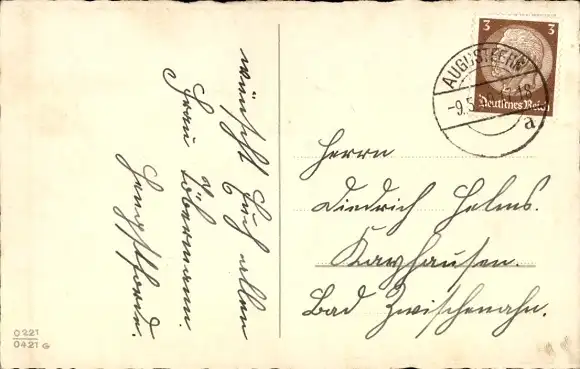 wünscht Euch allen
Frau Töbermann.
3 3
Deutsches Reich
AUGUSTFEHN
-9.5.
a
Herrn
Diedrich Helms.
Kayhausen.
Bad Zwischenahn.
0221
0421 G